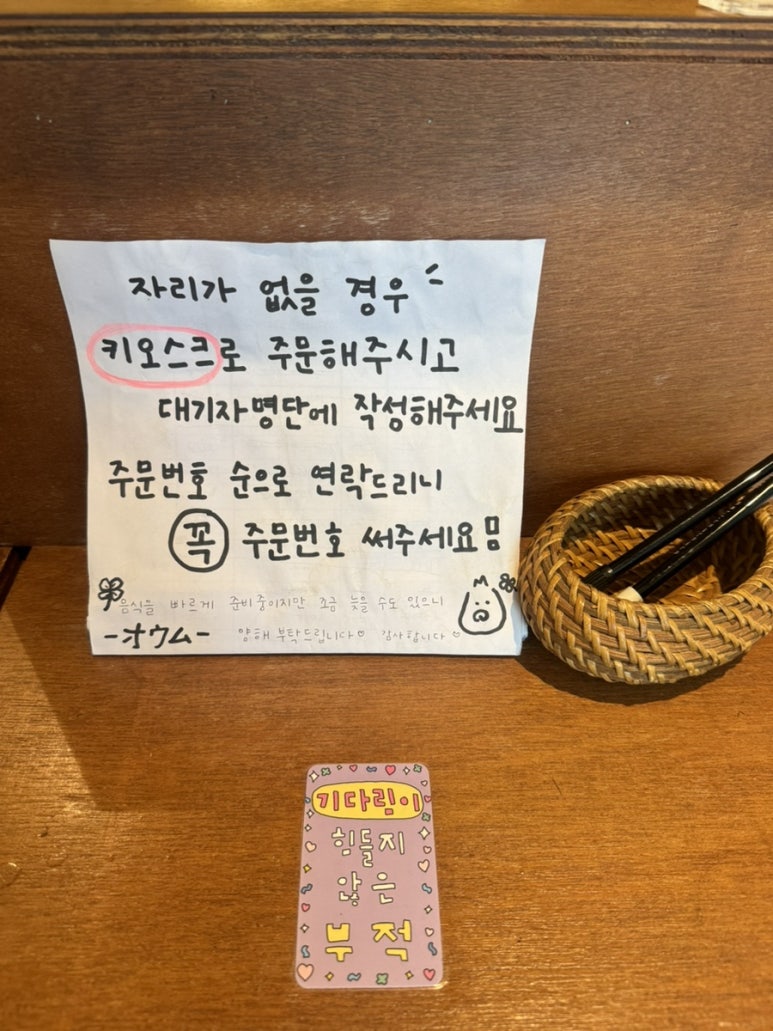 자리가 없을 경우
키오스크로 주문해주시고
대기자명단에 작성해주세요
주문번호 순으로 연락드리니
꼭 주문번호 써주세요!!
음식을 빠르게 준비중이지만 조금 늦을 수도 있으니
-オウム- 양해 부탁드립니다♡ 감사합니다♡
기다림이
힘들지
않은
부적